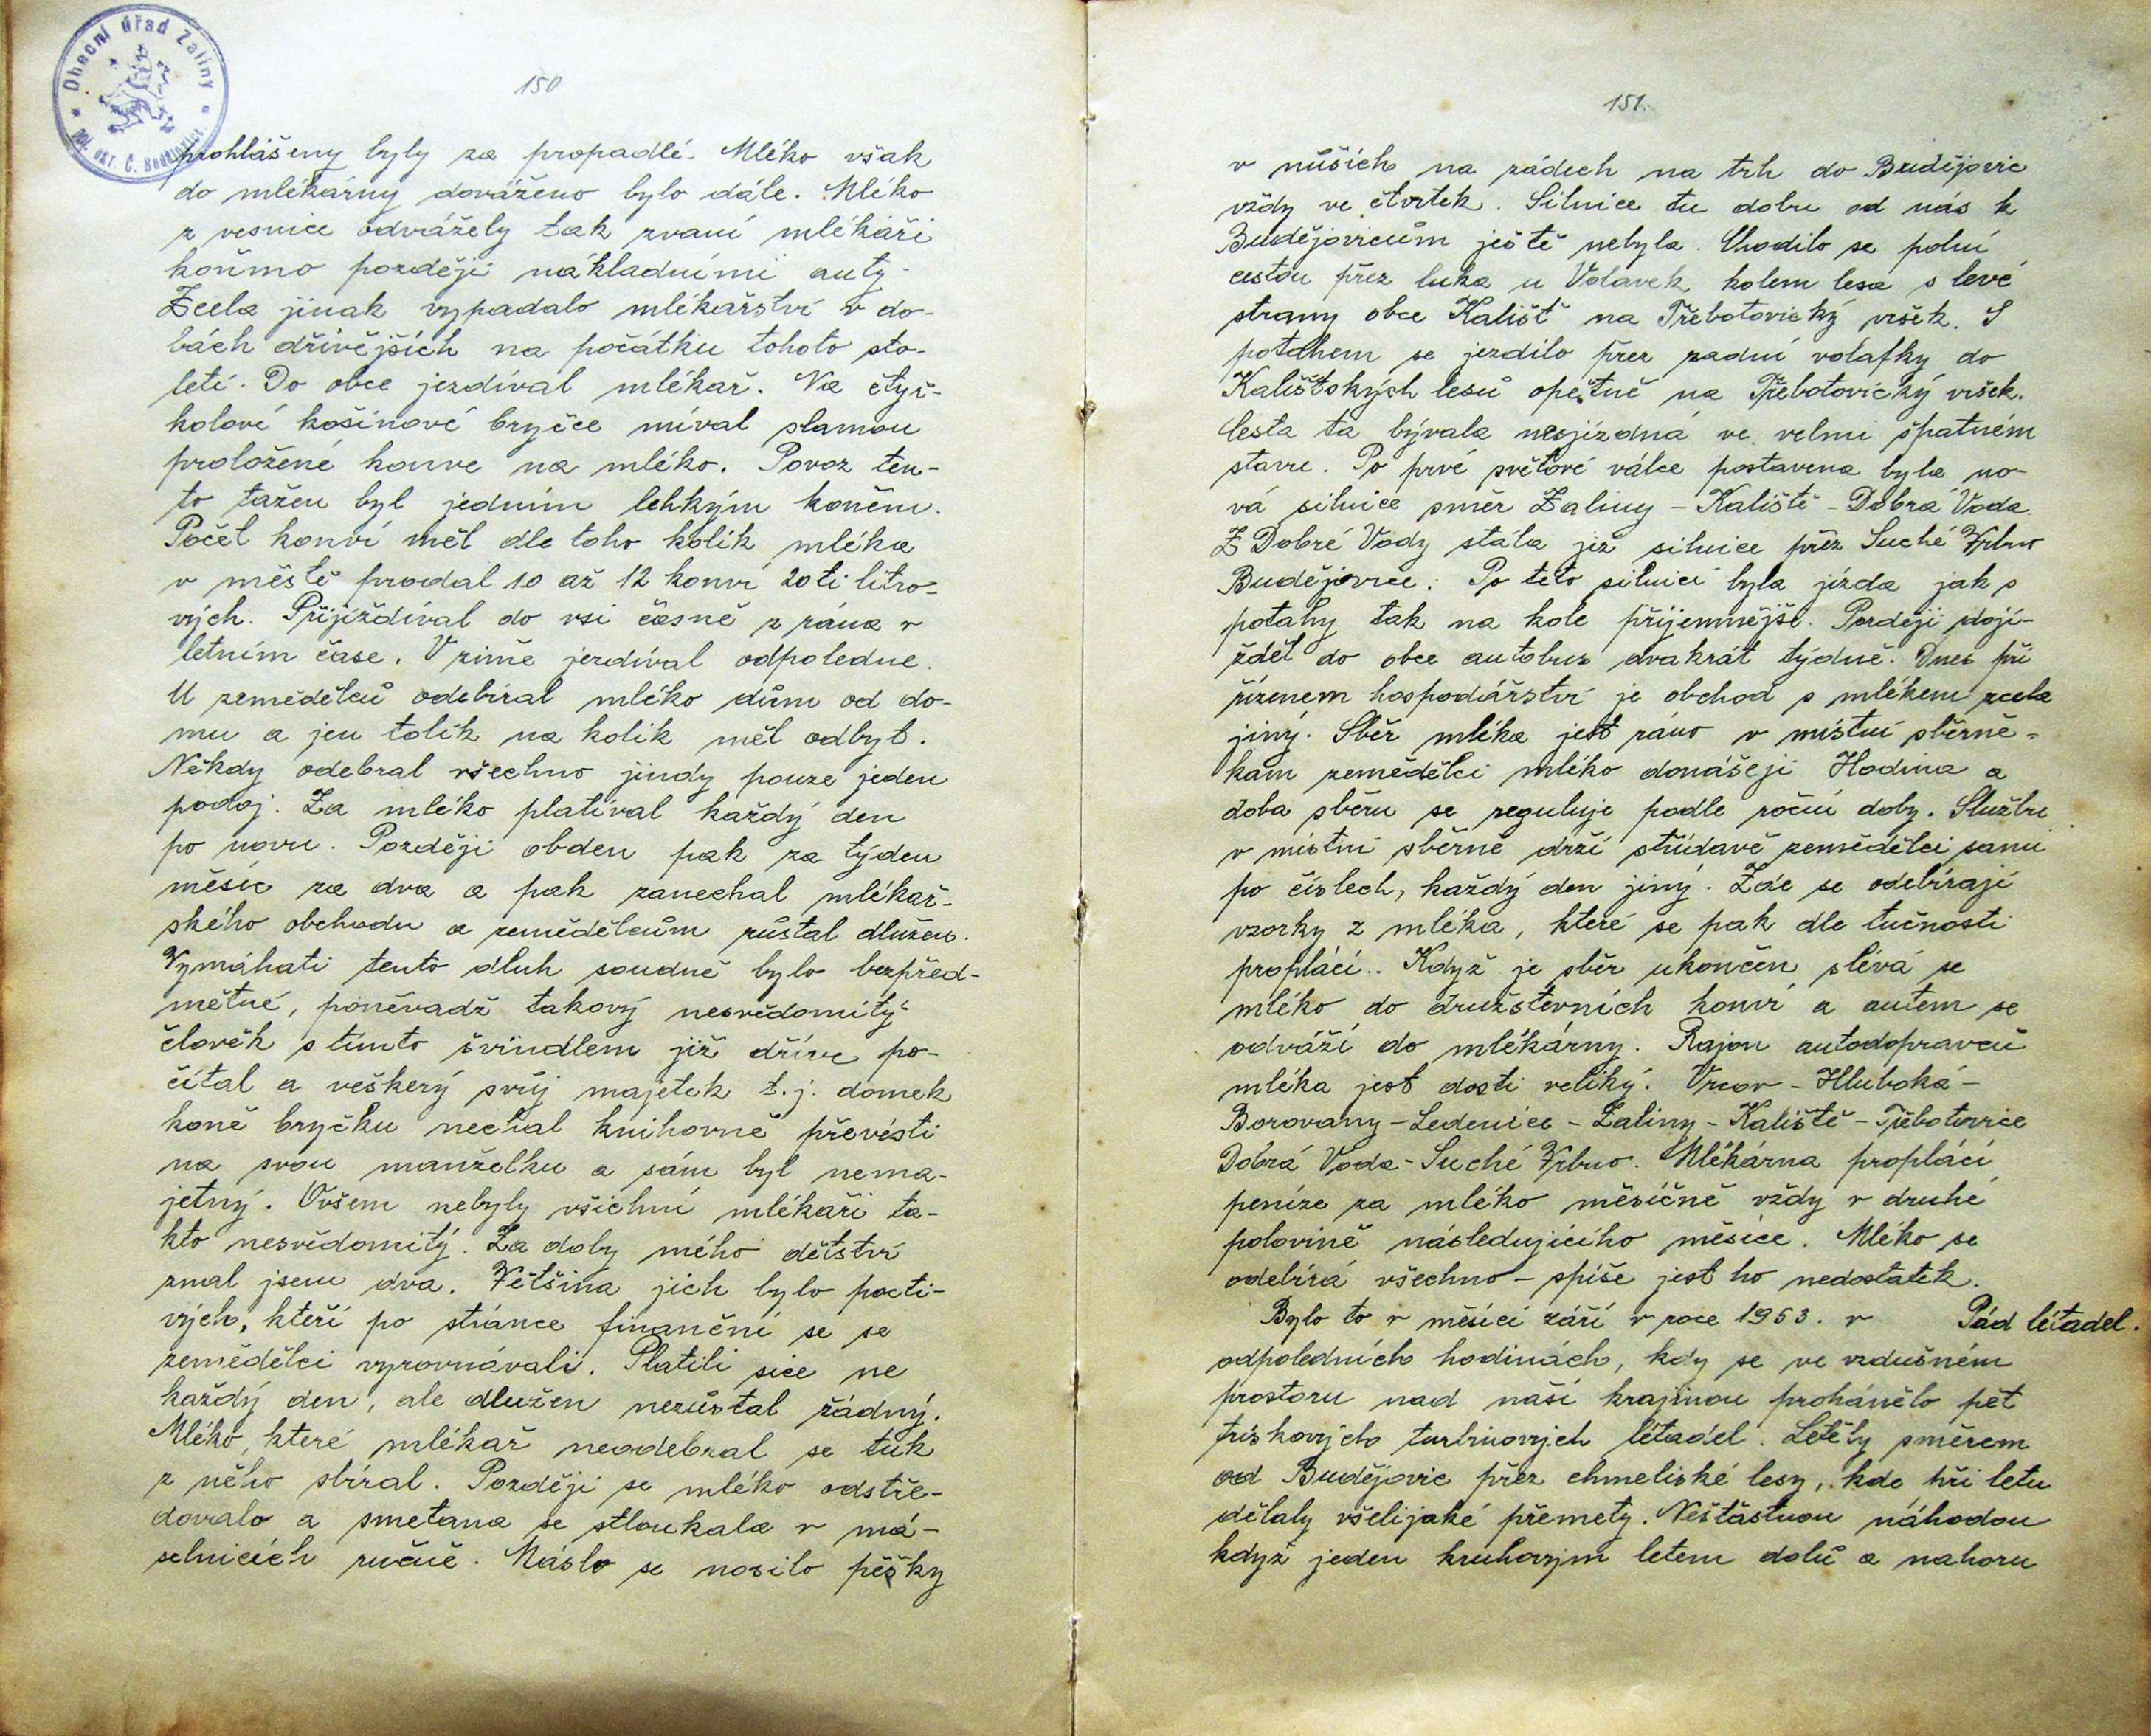 Obecní úřad Zaliny
Pol. okr. Č. Budějovice
150
prohlášeny byly za propadlé. Mléko však
do mlékárny dováženo bylo dále. Mléko
z vesnice odvážely tak zvaní mlékáři
koňmo později nákladními auty.
Zcela jinak vypadalo mlékařství v do-
bách dřívějších na počátku tohoto sto-
letí. Do obce jezdíval mlékař. Na čtyř-
kolové košinové bryčce míval slamou
proložené konve na mléko. Povoz ten-
to tažen byl jedním lehkým koněm.
Počet konví měl dle toho kolik mléka
v městě prodal 10 až 12 konví 20ti litro-
vých. Přijíždíval do vsi časně z rána v
letním čase. V zimě jezdíval odpoledne.
U zemědělců odebíral mléko dům od do-
mu a jen tolik na kolik měl odbyt.
Někdy odebral všechno jindy pouze jeden
podoj. Za mléko platíval každý den
po novu. Později obden pak za týden
měsíc za dva a pak zanechal mlékař-
ského obchodu a zemědělcům zůstal dlužen.
Vymáhati tento dluh soudně bylo bezpřed-
mětné, poněvadž takový nesvědomitý
člověk s tímto švindlem již dříve po-
čítal a veškerý svůj majetek t.j. domek
koně bryčku nechal knihovně převésti
na svou manželku a sám byl nema-
jetný. Ovšem nebyly všichni mlékaři ta-
kto nesvědomitý. Za doby mého dětství
znal jsem dva. Většina jich bylo pocti-
vých, kteří po stránce finanční se se
zemědělci vyrovnávali. Platili sice ne
každý den, ale dlužen nezůstal žádný.
Mléko, které mlékař neodebral se tuk
z něho sbíral. Později se mléko odstře-
dovalo a smetana se stloukala v má-
selnicích ručně. Máslo se nosilo pěšky
151.
v nůších na zádech na trh do Budějovic
vždy ve čtvrtek. Silnice tu dobu od nás k
Budějovicům ještě nebyla. Chodilo se polní
cestou přez luka u Volavek kolem lesa s levé
strany obce Kališt na Třebotovický vršek. S
potahem se jezdilo přez zadní volafky do
Kališťských lesů opětně na Třebotovický vršek.
Cesta ta bývala nesjízdná ve velmi špatném
stavu. Po prvé světové válce postavena byla no-
vá silnice směr Zaliny - Kaliště - Dobrá Voda
Z Dobré Vody stála již silnice přez Suché Vrbno
Budějovice. Po této silnici byla jízda jak s
potahy tak na kole příjemnější. Později dojí-
žděl do obce autobus dvakrát týdně. Dnes při
řízenem hospodářství je obchod s mlékem zcela
jiný. Sběr mléka jest ráno v místní sběrně -
kam zemědělci mléko donášejí Hodina a
doba sběru se reguluje podle roční doby. Službu
v místní sběrně drží střídavě zemědělci sami
po číslech, každý den jiný. Zde se odebírají
vzorky z mléka, které se pak dle tučnosti
proplácí.. Když je sběr ukončen slévá se
mléko do družstevních konví a autem se
odváží do mlékárny. Rajon autodopravců
mléka jest dosti veliký. Vrcov - Hluboká -
Borovany - Ledenice - Zaliny - Kaliště - Třebotovice
Dobrá Voda - Suché Vrbno. Mlékárna proplácí
peníze za mléko měsíčně vždy v druhé
polovině následujícího měsíce. Mléko se
odebírá všechno - spíše jest ho nedostatek.
Bylo to v měsíci září v roce 1953. v
Pád létadel.
odpoledních hodinách, kdy se ve vzdušném
prostoru nad naší krajinou prohánělo pět
tryskových turbinových létadel. Letěly směrem
od Budějovic přez chmeliské lesy, kde při letu
dělaly všelijaké přemety. Nešťastnou náhodou
když jeden kruhovým letem dolů a nahoru